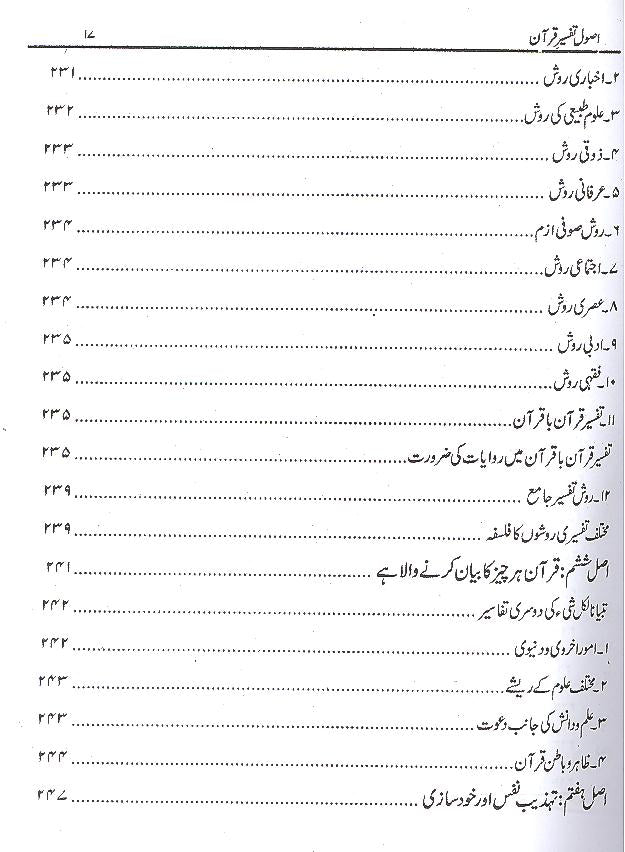 اصول تفسیر قرآن ۱۷
۲۔اخباری روش ۲۳۱
۳۔علوم طبیعی کی روش ۲۳۲
۴۔ذوقی روش ۲۳۳
۵۔عرفانی روش ۲۳۳
۶۔روش صوفی ازم ۲۳۴
۷۔اجتماعی روش ۲۳۴
۸۔عصری روش ۲۳۴
۹۔ادبی روش ۲۳۵
۱۰۔فقہی روش ۲۳۵
۱۱۔تفسیر قرآن باقرآن ۲۳۵
تفسیر قرآن باقرآن میں روایات کی ضرورت ۲۳۵
۱۲۔روش تفسیر جامع ۲۳۹
مختلف تفسیری روشوں کا فلسفہ ۲۳۹
اصل ششم: قرآن ہر چیز کا بیان کرنے والا ہے ۲۴۱
تبیانا لکل شیء کی دوسری تفاسیر ۲۴۲
۱۔امور اخروی و دنیوی ۲۴۲
۲۔مختلف علوم کے ریشے ۲۴۳
۳۔علم و دانش کی جانب دعوت ۲۴۳
۴۔ظاہر و باطن قرآن ۲۴۴
اصل ہفتم: تہذیب نفس اور خود سازی ۲۴۷